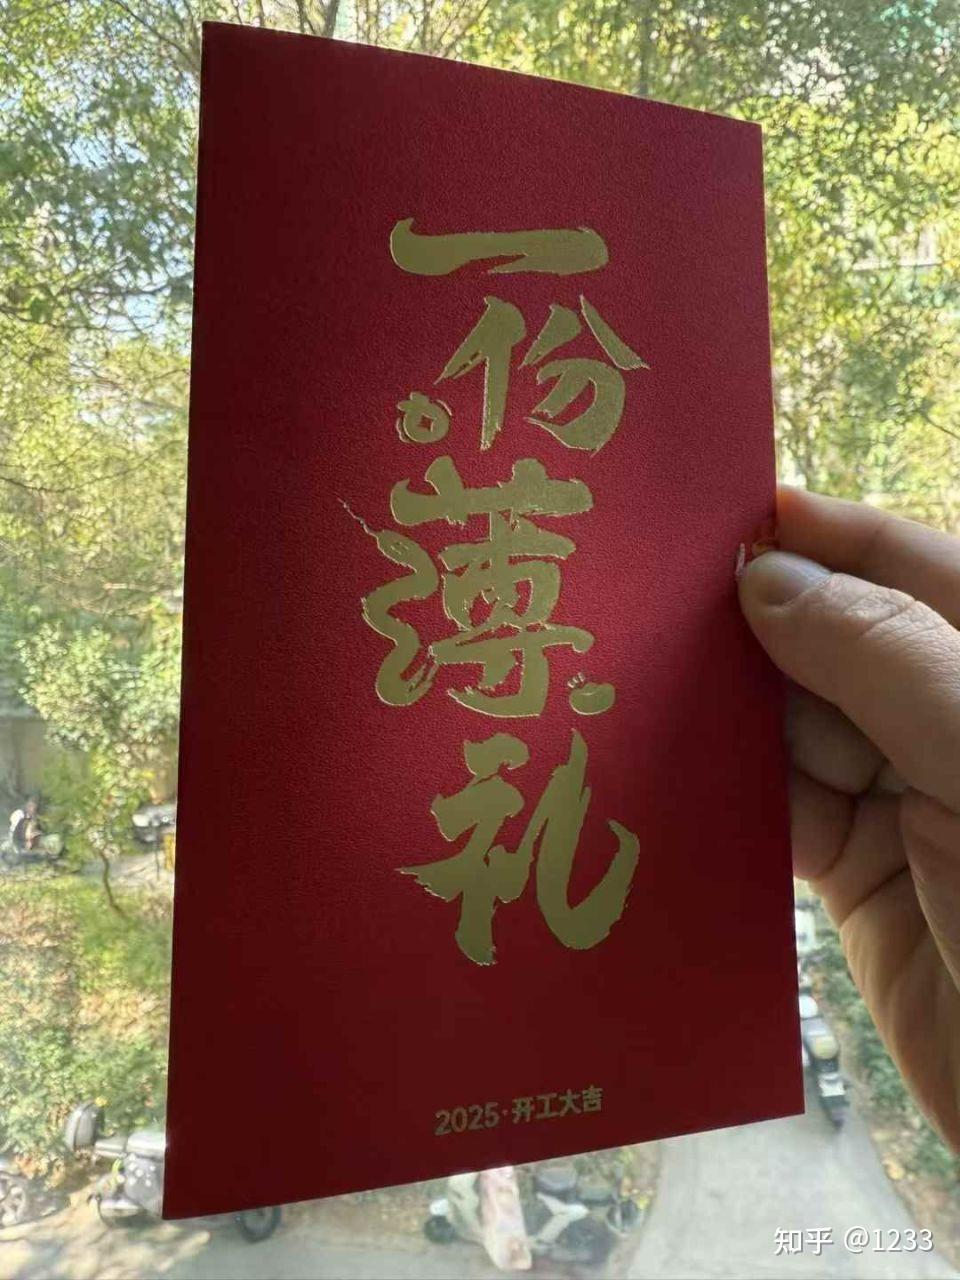 一份薄礼
2025·开工大吉
知乎 @1233